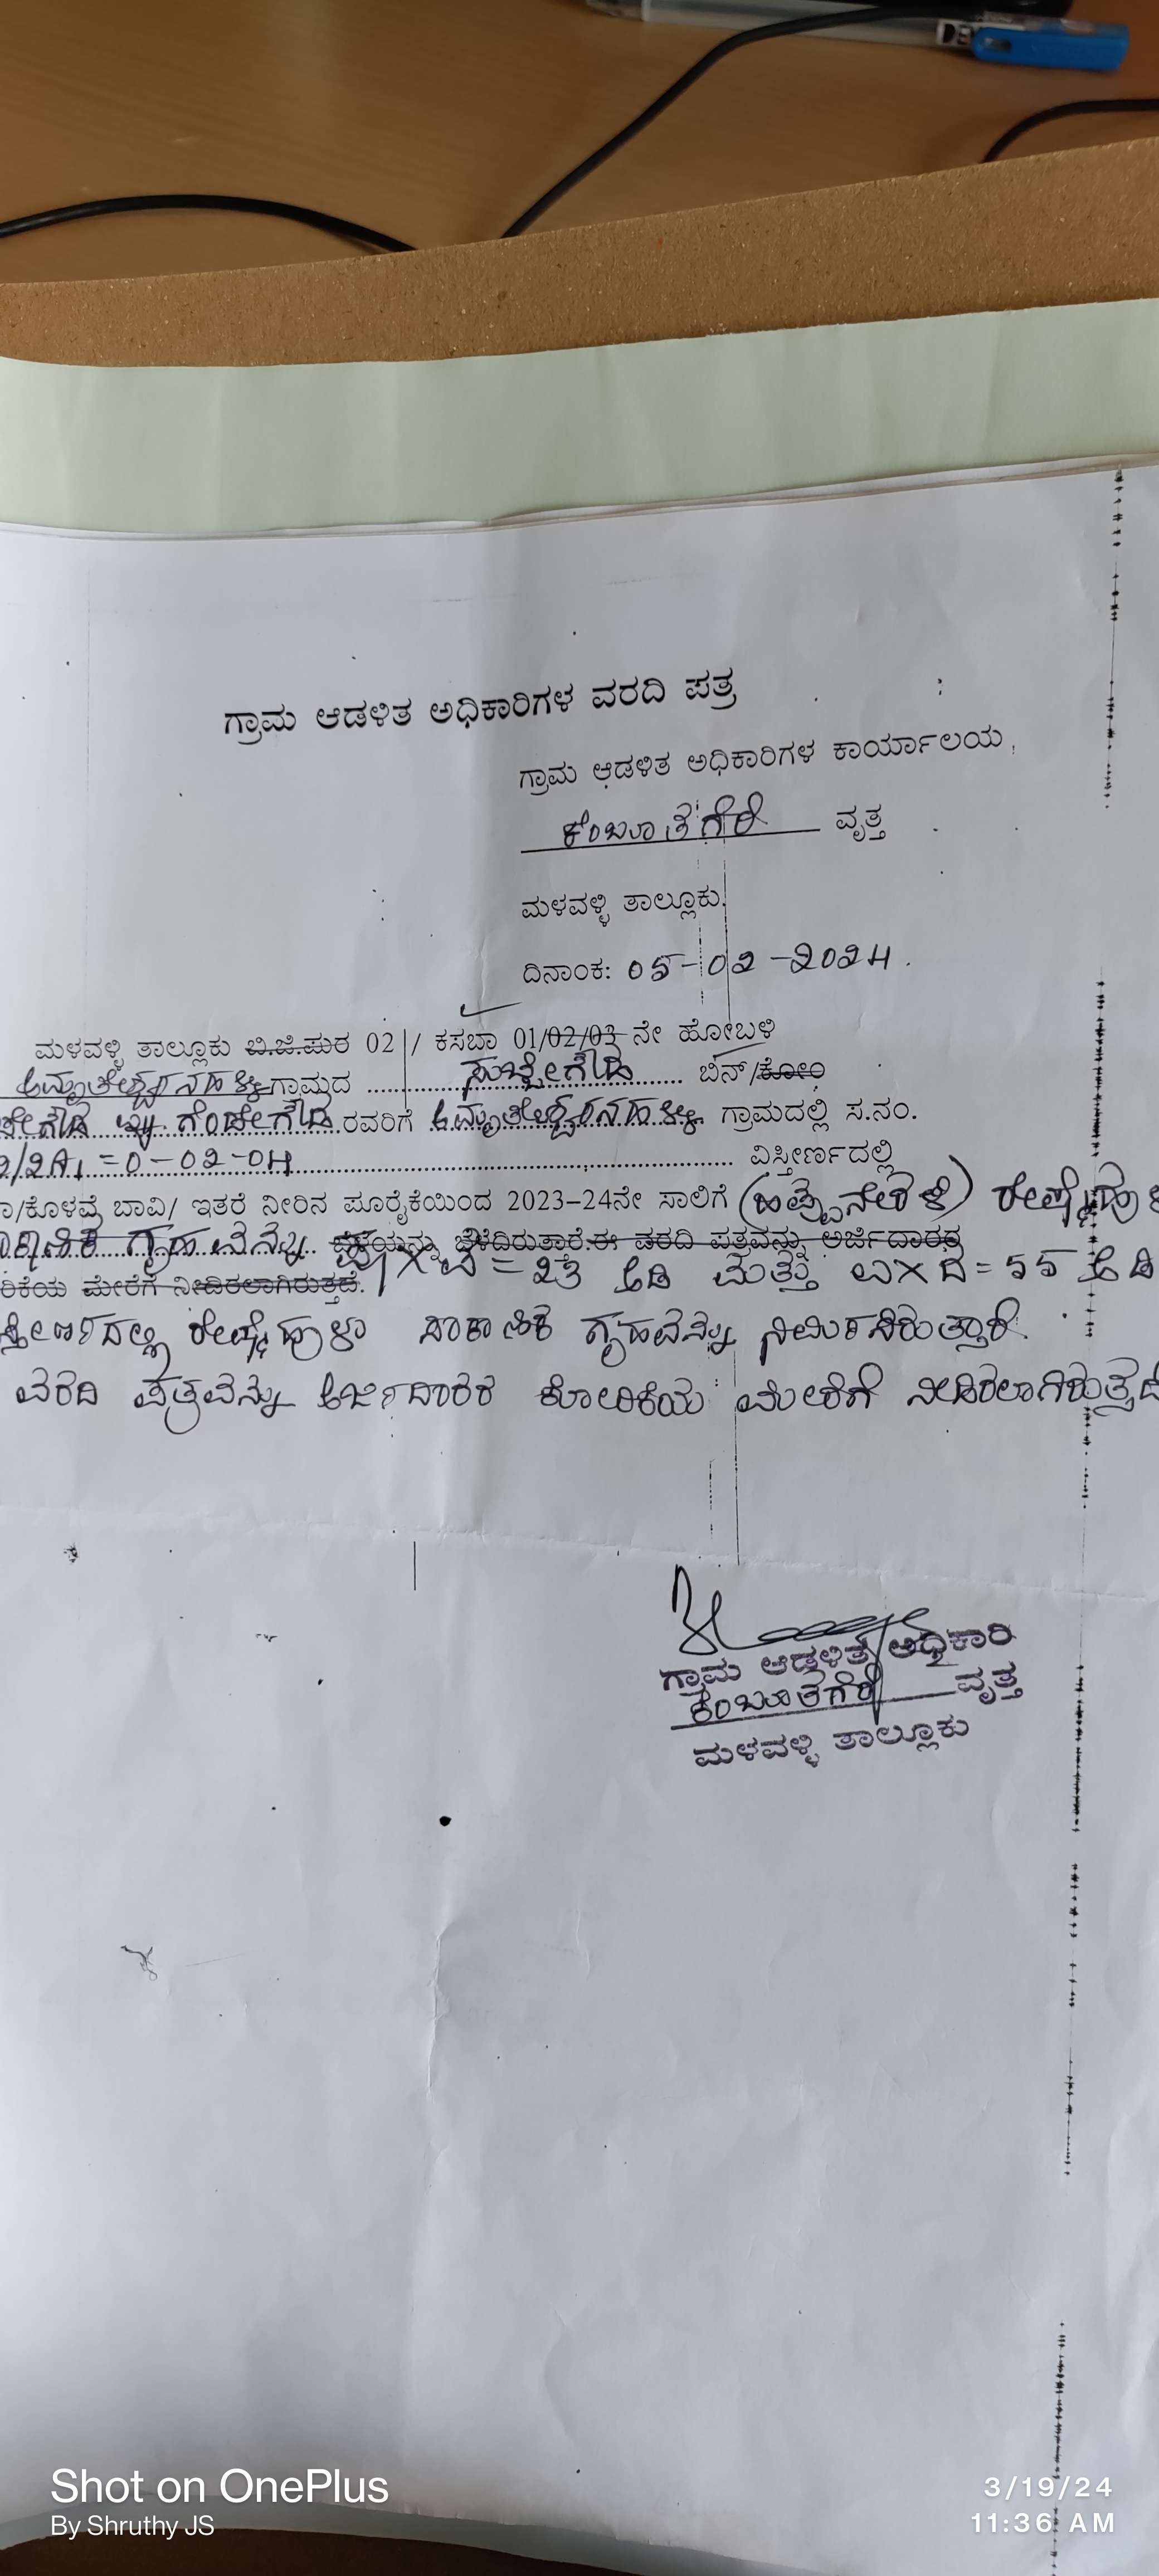 ಗ್ರಾಮ ಆಡಳಿತ ಅಧಿಕಾರಿಗಳ ವರದಿ ಪತ್ರ
ಗ್ರಾಮ ಆಡಳಿತ ಅಧಿಕಾರಿಗಳ ಕಾರ್ಯಾಲಯ,
ವೃತ್ತ
ಮಳವಳ್ಳಿ ತಾಲ್ಲೂಕು.
ದಿನಾಂಕ: 05-02-2024.
ಮಳವಳ್ಳಿ ತಾಲ್ಲೂಕು ಬಿ.ಜಿ.ಪುರ 02 / ಕಸಬಾ 01/02/03 ನೇ ಹೋಬಳಿ
ಗ್ರಾಮದ ............ ಬಿನ್/ಕೋಂ
ರವರಿಗೆ ಗ್ರಾಮದಲ್ಲಿ ಸ.ನಂ.
2/2A1 = 0-02-04 ............ ವಿಸ್ತೀರ್ಣದಲ್ಲಿ
/ಕೊಳವೆ ಬಾವಿ/ ಇತರೆ ನೀರಿನ ಪೂರೈಕೆಯಿಂದ 2023–24ನೇ ಸಾಲಿಗೆ (ಹಿಪ್ಪುನೇರಳೆ) ರೇಷ್ಮೆಹುಳ
ಗೃಹವನ್ನು ಬೆಳೆಯನ್ನು ಬೆಳೆದಿರುತ್ತಾರೆ.ಈ ವರದಿ ಪತ್ರವನ್ನು ಅರ್ಜಿದಾರರ
ರಿಕೆಯ ಮೇರೆಗೆ ನೀಡಿರಲಾಗಿರುತ್ತದೆ. = 23 ಅಡಿ ಮತ್ತು = 55 ಅಡಿ
ರೇಷ್ಮೆಹುಳು ಸಾಕಾಣಿಕೆ ಗೃಹವನ್ನು ನಿರ್ಮಿಸಿರುತ್ತಾರೆ.
ವರದಿ ಪತ್ರವನ್ನು ಅರ್ಜಿದಾರರ ಕೋರಿಕೆಯ ಮೇರೆಗೆ ನೀಡಿರಲಾಗಿರುತ್ತದೆ
ಗ್ರಾಮ ಆಡಳಿತ ಅಧಿಕಾರಿ
ವೃತ್ತ
ಮಳವಳ್ಳಿ ತಾಲ್ಲೂಕು
Shot on OnePlus
By Shruthy JS
3/19/24
11:36 AM